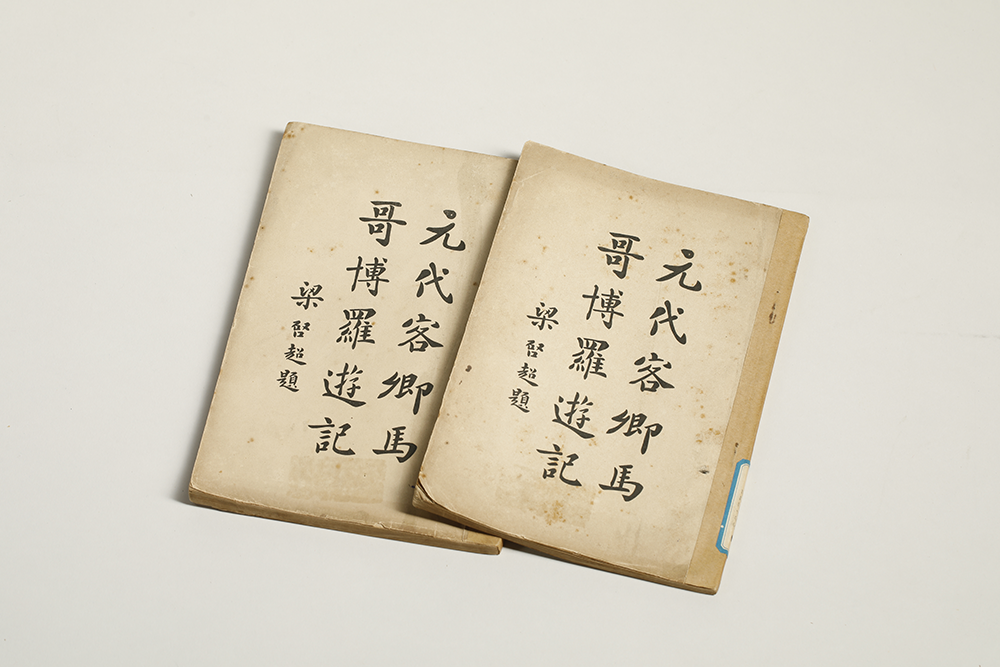 元代客卿馬
哥博羅遊記
梁啓超題
元代客卿馬
哥博羅遊記
梁啓超題